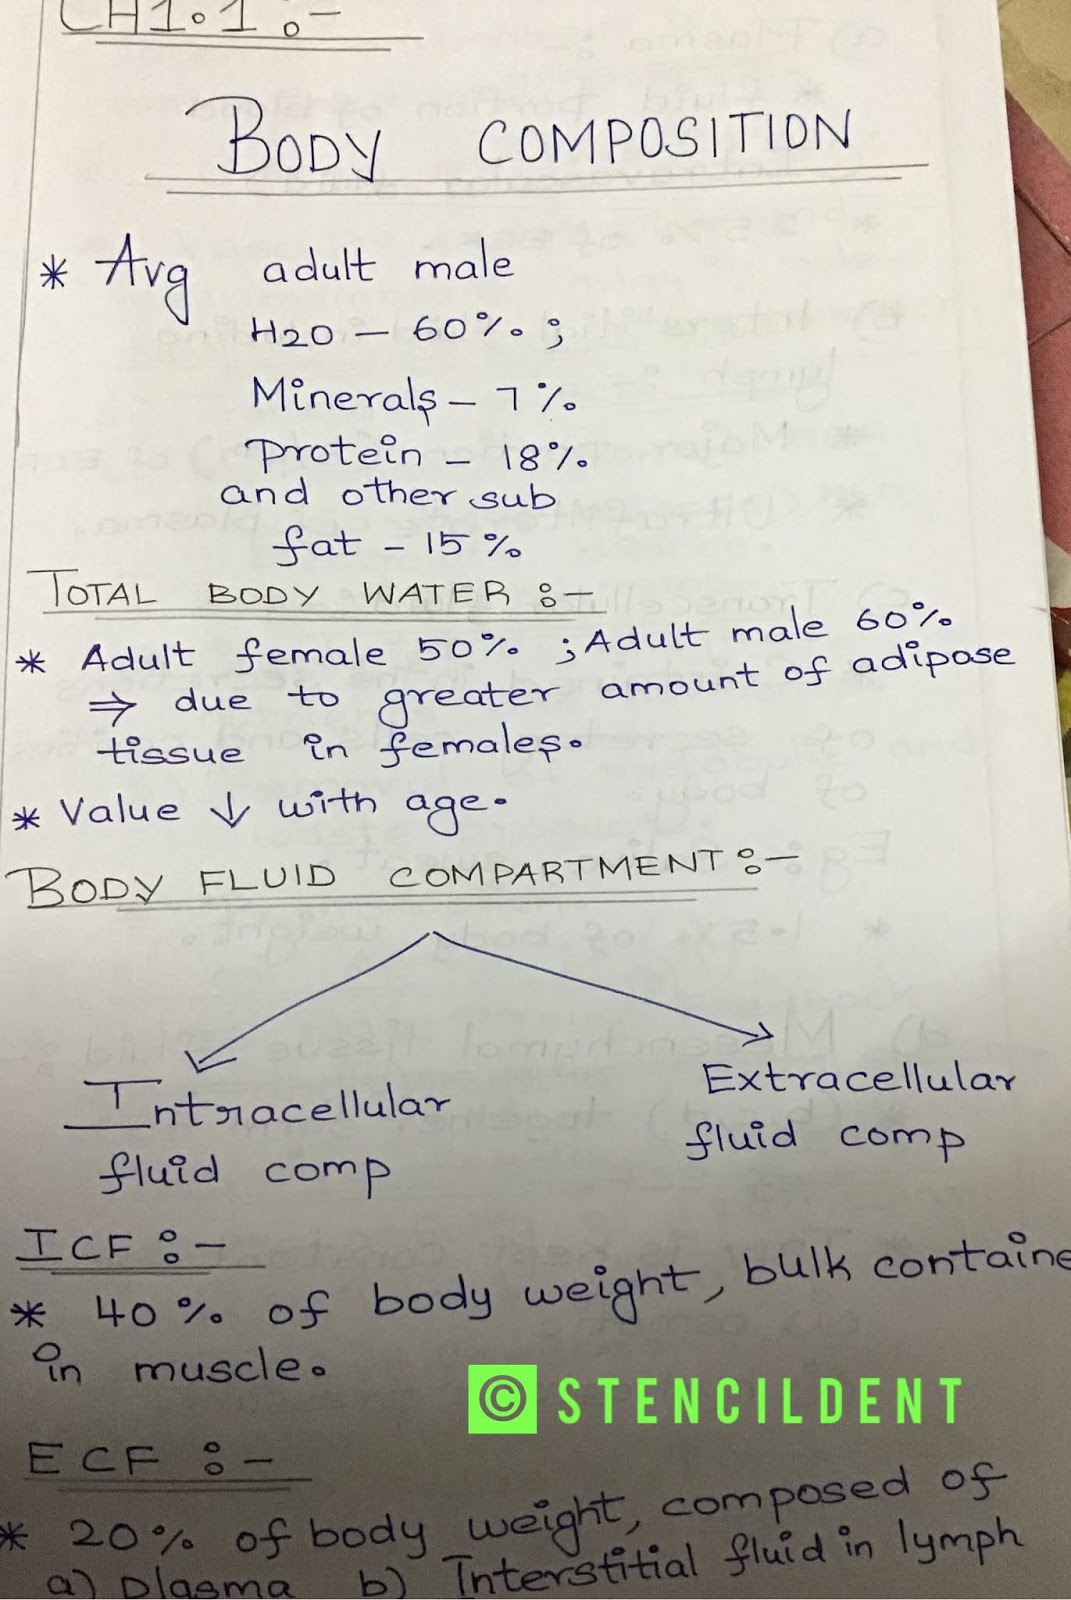 CH1.1 :-
BODY COMPOSITION
* Avg adult male
H2O - 60%;
Minerals - 7%
Protein - 18%
and other sub
fat - 15%
TOTAL BODY WATER :-
* Adult female 50% ; Adult male 60%
⇒ due to greater amount of adipose
tissue in females.
* Value ↓ with age.
BODY FLUID COMPARTMENT :-
Intracellular
fluid comp
Extracellular
fluid comp
ICF :-
* 40% of body weight, bulk containe
in muscle.
© STENCILDENT
ECF :-
* 20% of body weight, composed of
a) plasma b) Interstitial fluid in lymph